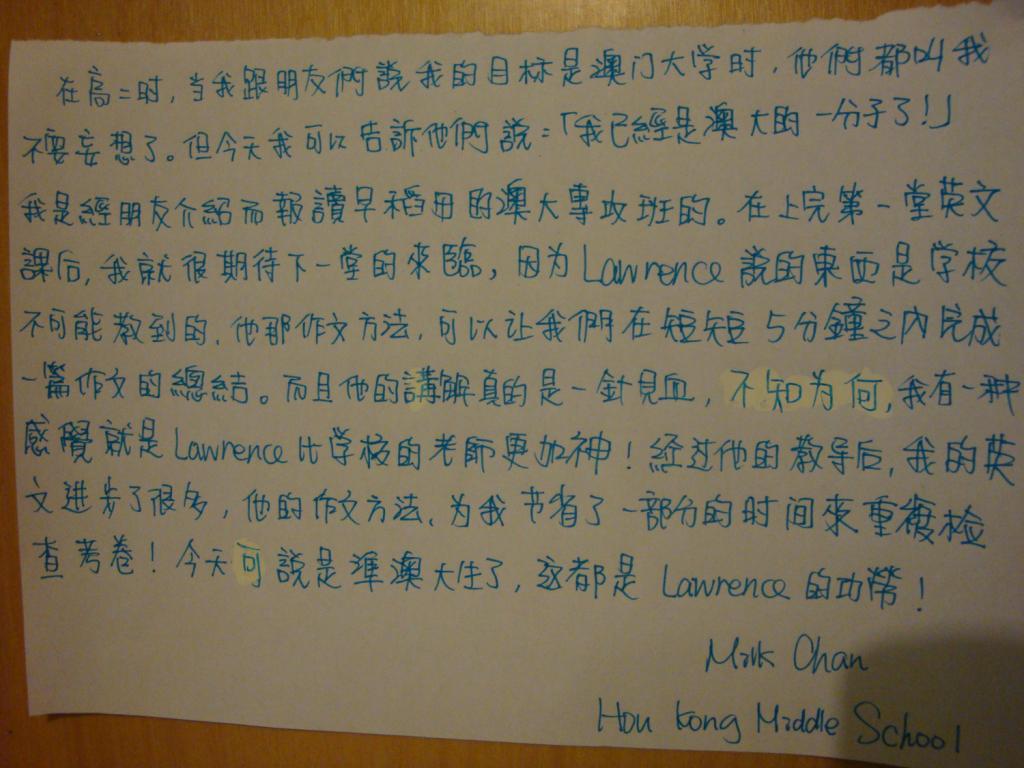 在高二时，当我跟朋友們說我的目标是澳门大学时，他們都叫我
不要妄想了。但今天我可以告訴他們說：「我已經是澳大的一分子了！」
我是經朋友介紹而報讀早稻田的澳大專攻班的。在上完第一堂英文
課后，我就很期待下一堂的來臨，因为Lawrence說的東西是学校
不可能教到的，他那作文方法，可以让我們在短短5分鐘之內完成
一篇作文的總結。而且他的講解真的是一針見血，不知为何，我有一种
感覺就是Lawrence比学校的老師更加神！经过他的教导后，我的英
文进步了很多，他的作文方法，为我节省了一部分的时间來重複检
查考卷！今天可說是準澳大生了，这都是Lawrence的功勞！
Mark Chan
Hou Kong Middle School